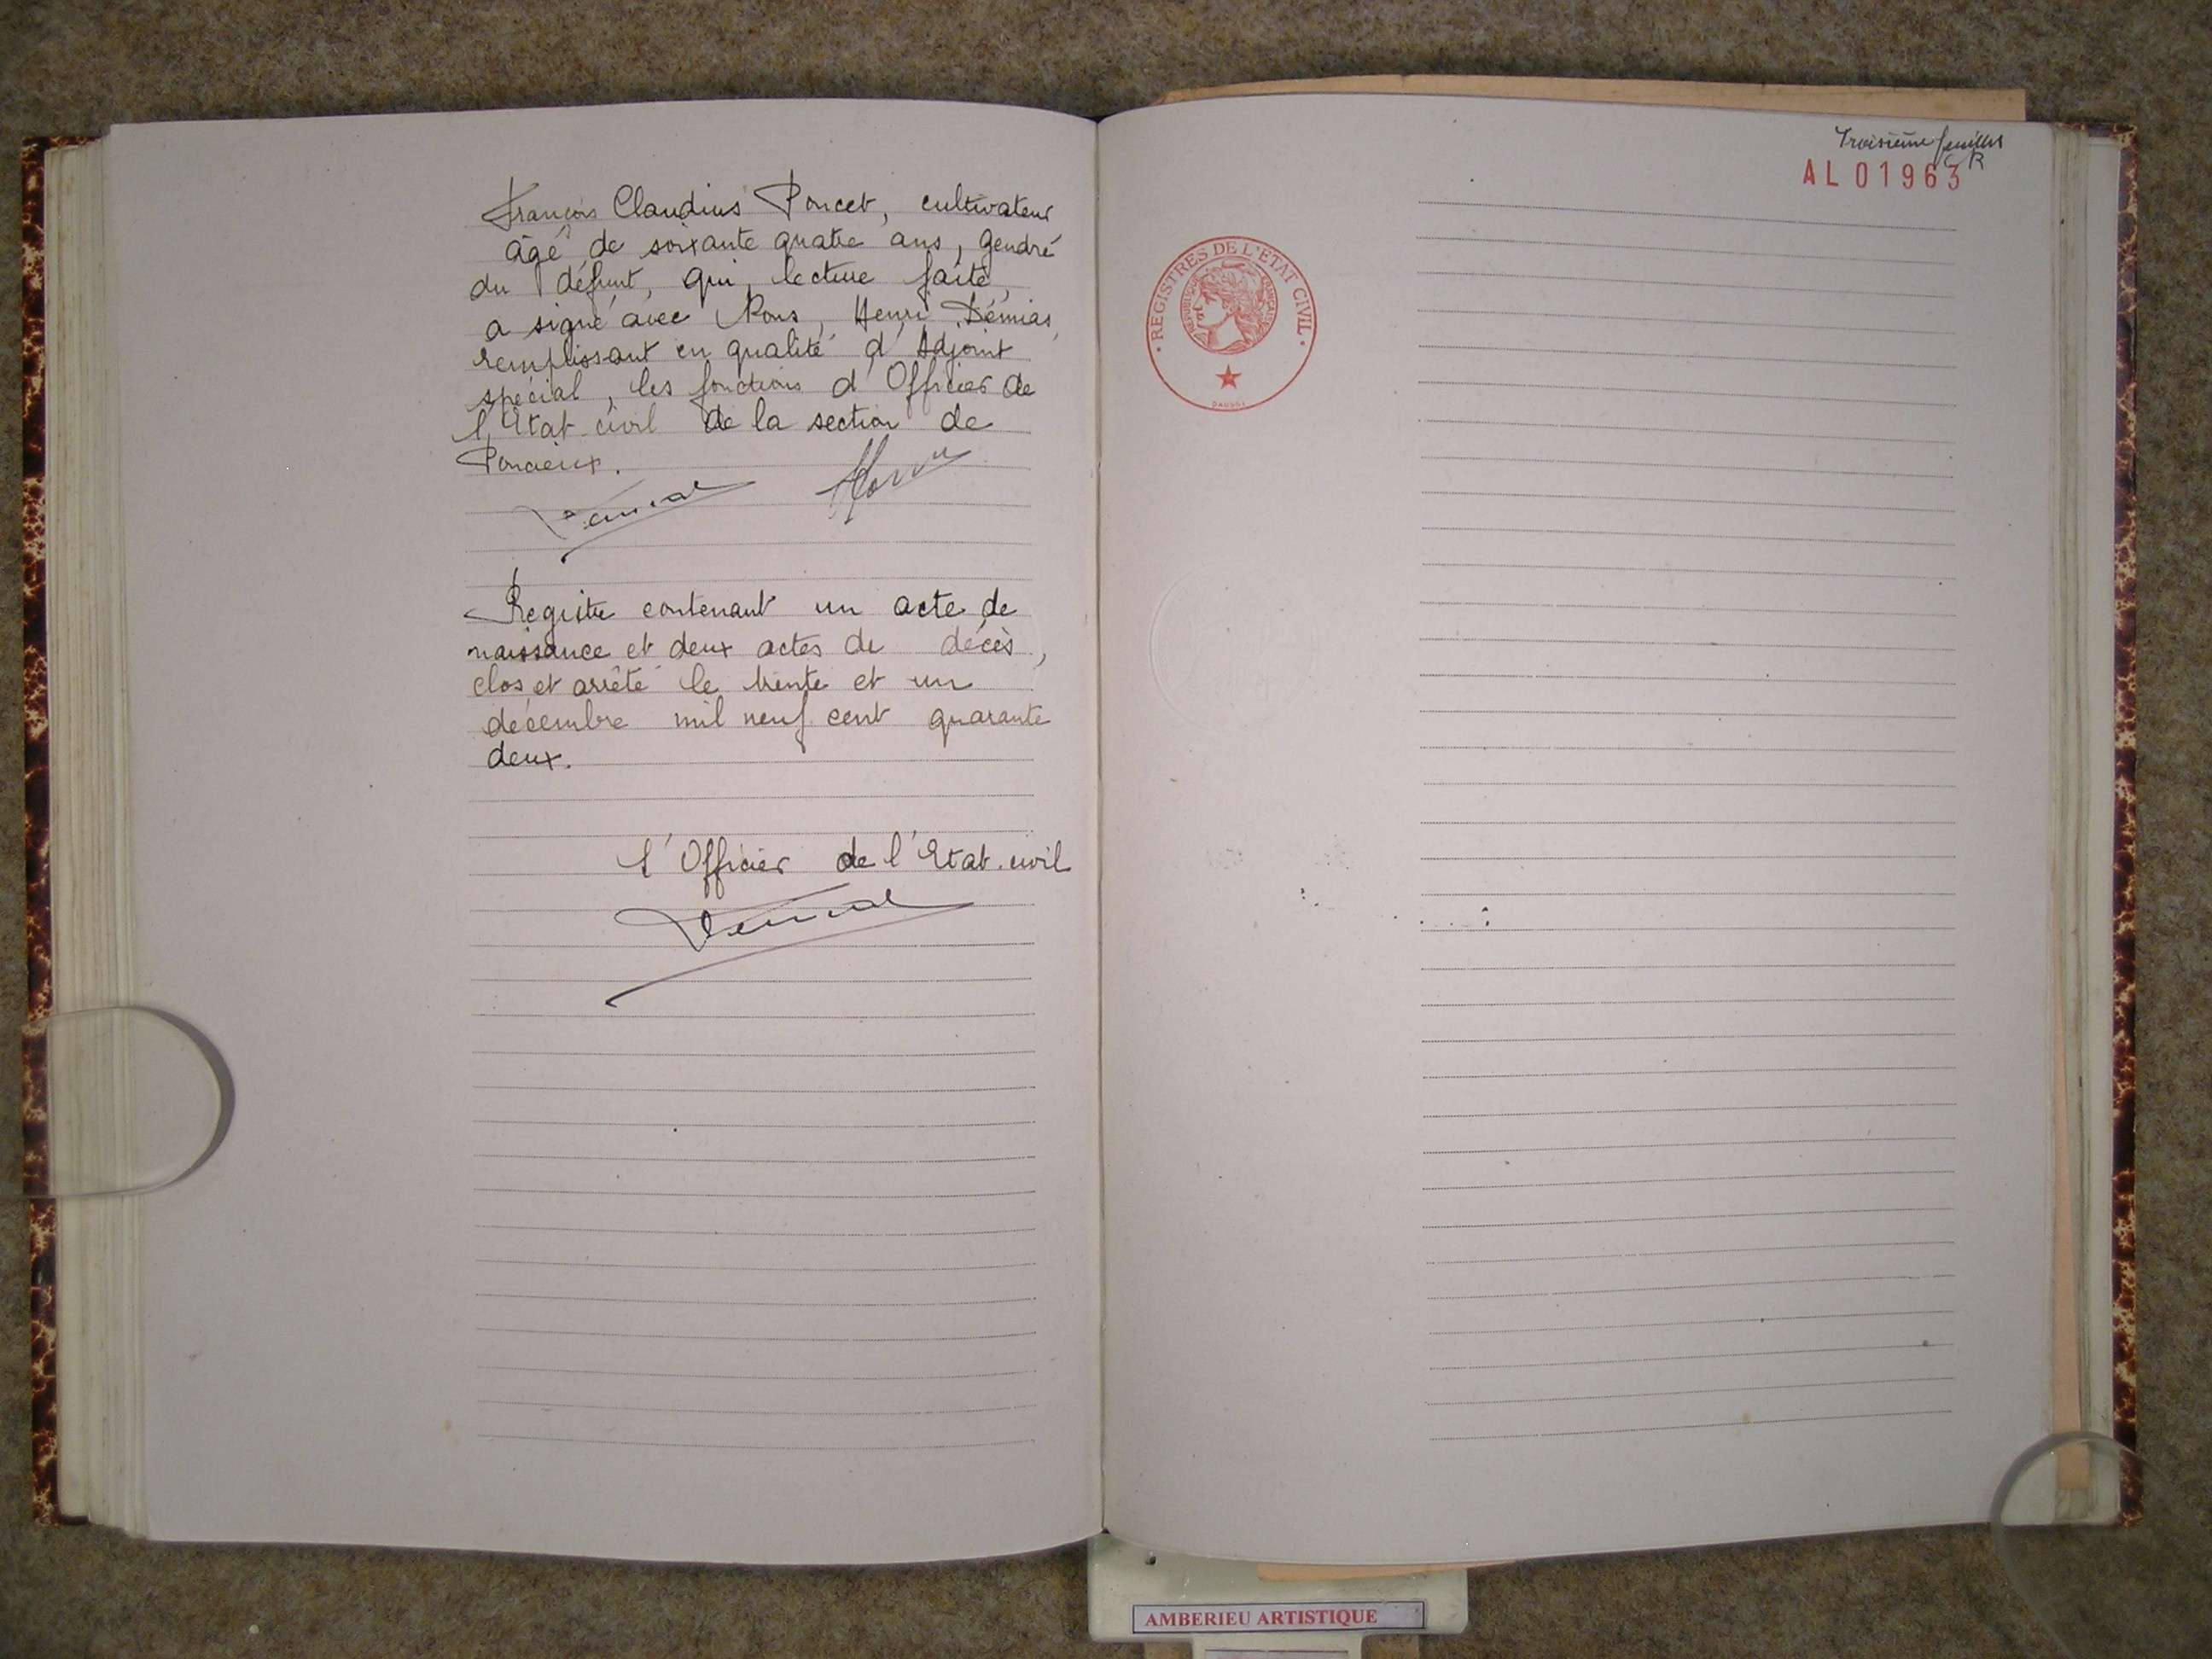 François Claudius Poncet, cultivateur
âgé de soixante quatre ans, gendre
du défunt, qui, lecture faite,
a signé avec Nous, Henri Démias,
remplissant en qualité d'Adjoint
spécial, les fonctions d'Officier de
l'Etat-civil de la section de
Poncieux.
Registre contenant un acte de
naissance et deux actes de décès,
clos et arrêté le trente et un
décembre mil neuf cent quarante
deux.
L'Officier de l'Etat-civil
Troisième feuillet
AL 01963
• REGISTRES DE L'ETAT CIVIL •
REPUBLIQUE FRANÇAISE
AMBERIEU ARTISTIQUE